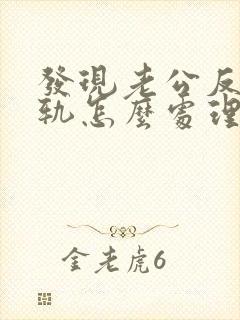 發現老公反
軌怎麼處理
金老虎6